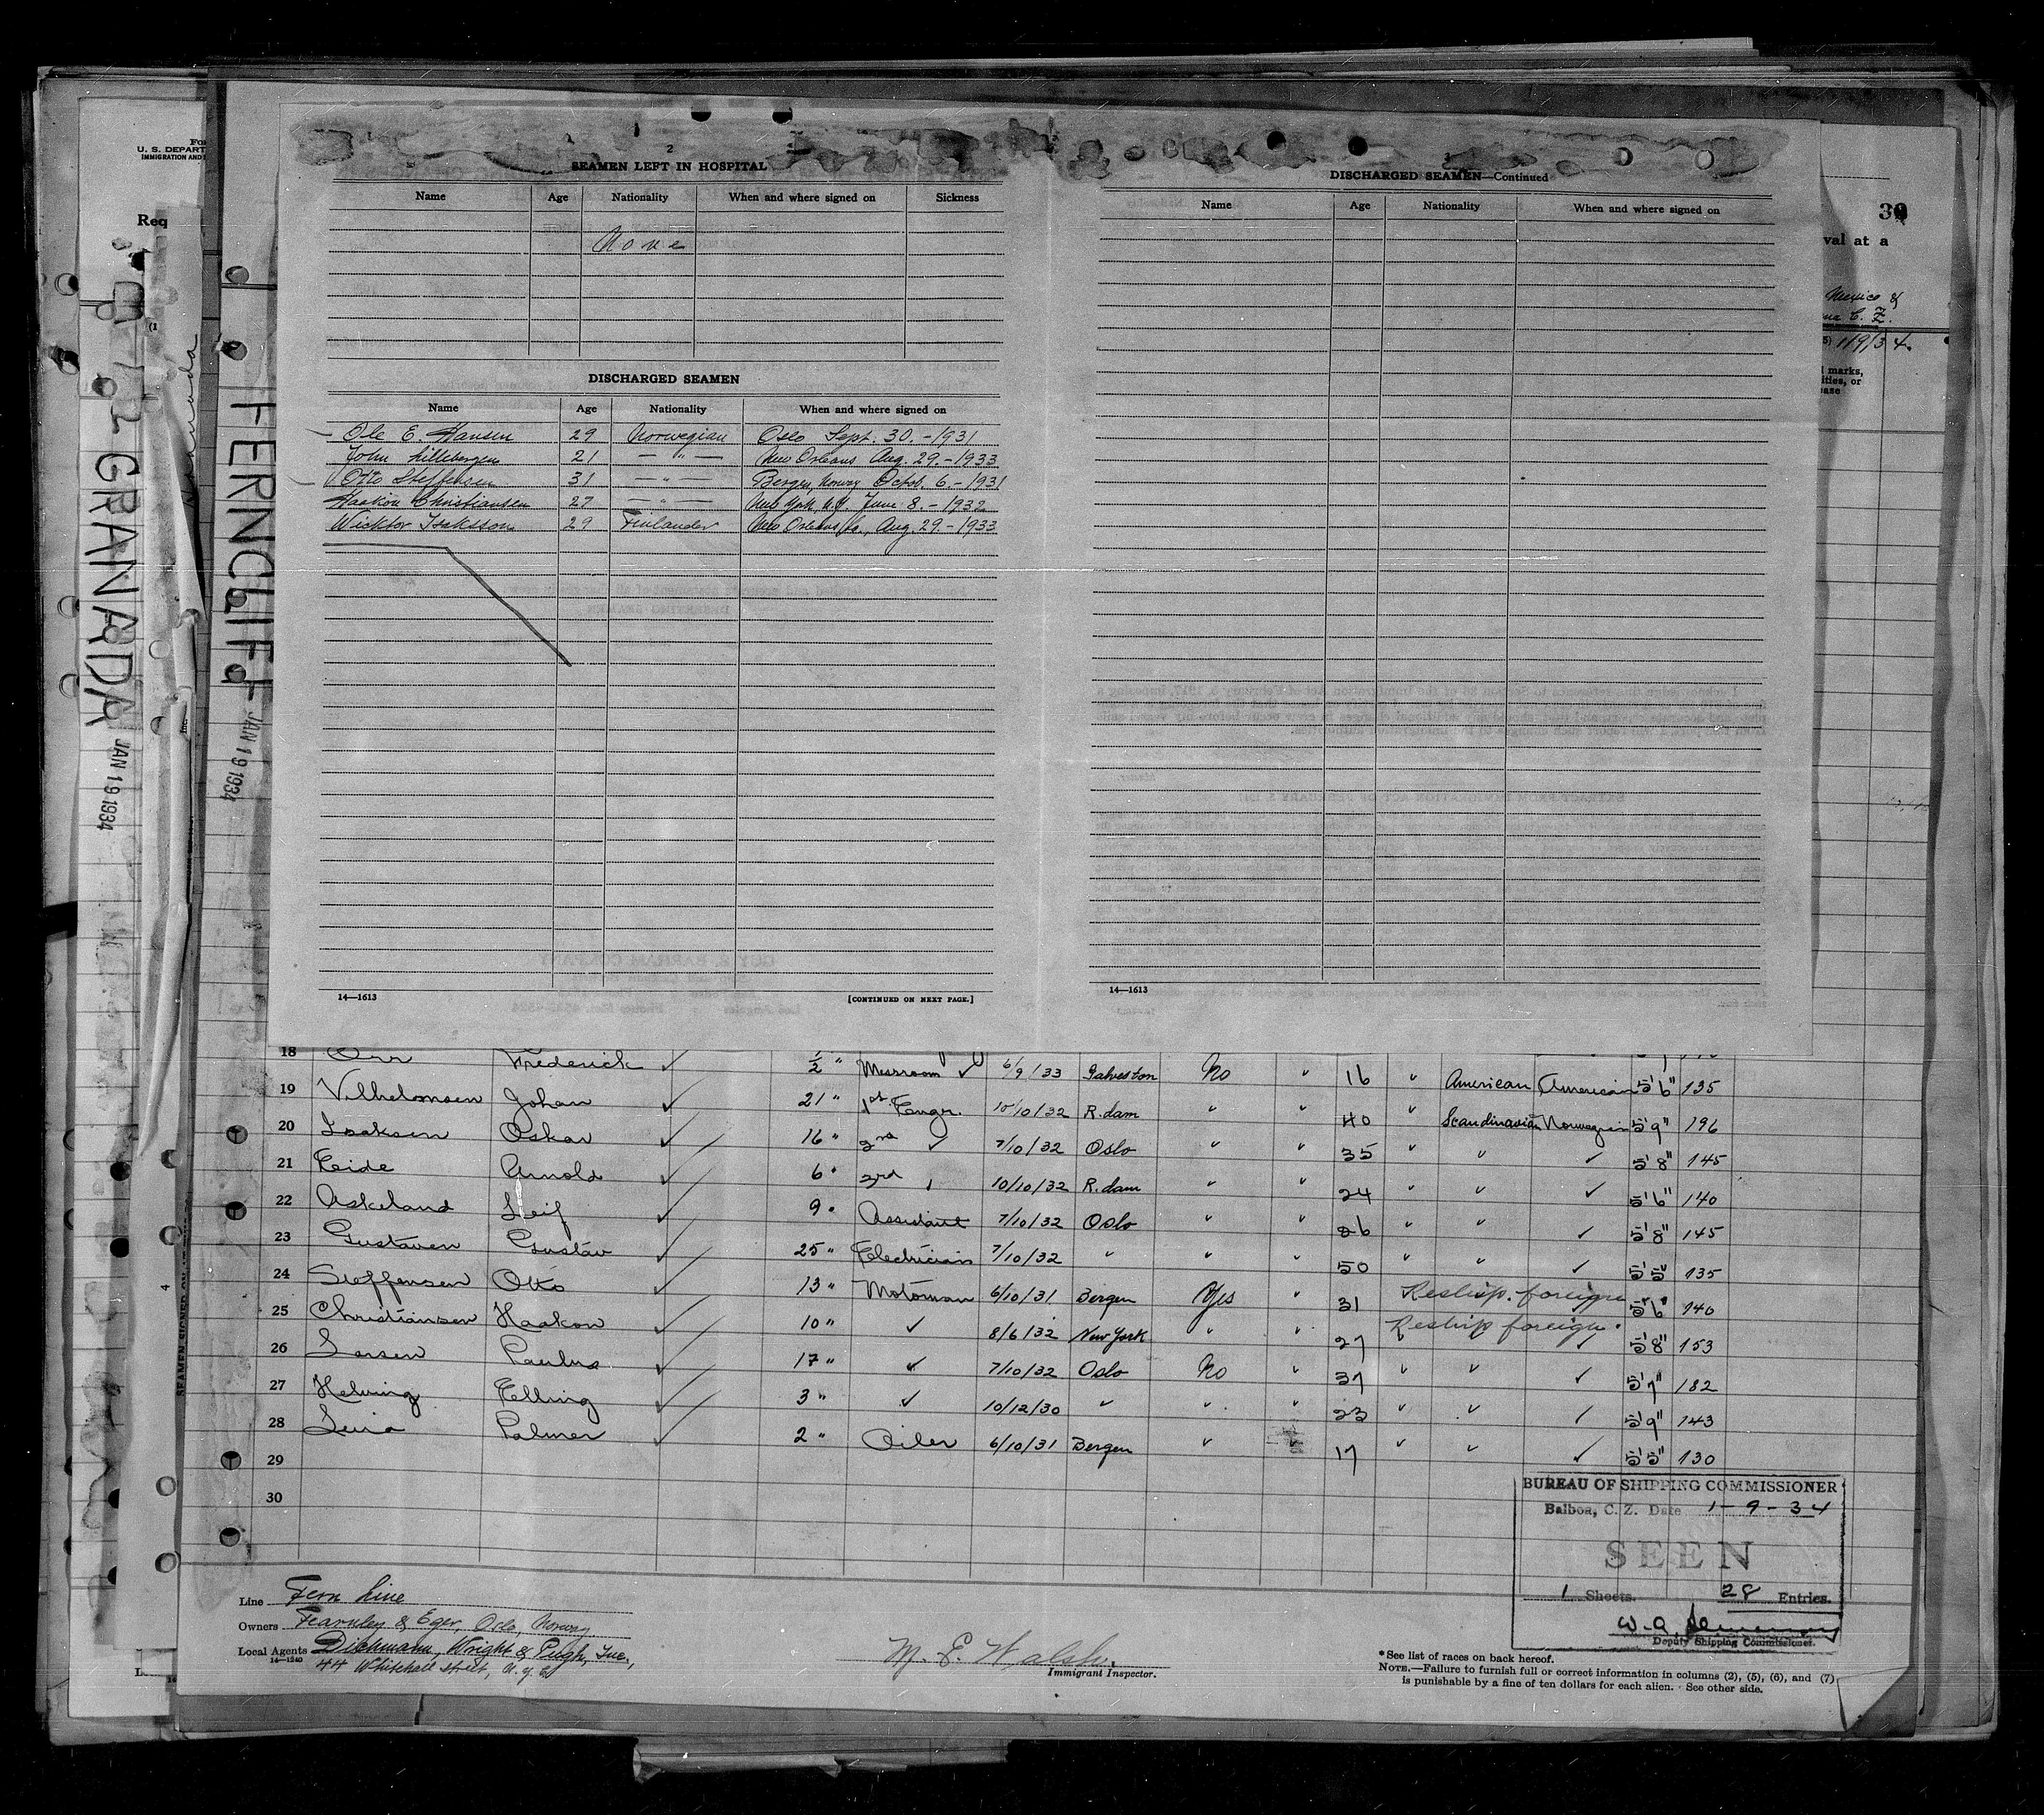 For
U. S. DEPART
IMMIGRATION AND
Req
GRANADA
JAN 19 1934
FERNCLIFF
JAN 19 1934
30
val at a
Mexico &
C. Z.
1/9/34.
marks,
ities, or
ease
2
SEAMEN LEFT IN HOSPITAL
Name Age Nationality When and where signed on Sickness
None
DISCHARGED SEAMEN
Name Age Nationality When and where signed on
Ole E. Hansen 29 Norwegian Oslo Sept. 30.-1931
John Lillebergen 21 — " — New Orleans Aug. 29.-1933
Otto Steffensen 31 — " — Bergen, Norway Octob. 6.-1931
Haakon Christiansen 27 — " — New York, N.Y. June 8.-1932
Wicktor Isaksson 29 Finlander New Orleans La., Aug. 29.-1933
14—1613 [CONTINUED ON NEXT PAGE.]
DISCHARGED SEAMEN—Continued
Name Age Nationality When and where signed on
14—1613
18 Orr Frederick ✓ 1/2 " Messroom ✓ 6/9/33 Galveston No " 16 " American American 5'6" 135
19 Vilhelmsen Johan ✓ 21 " 1st Engr. 10/10/32 R.dam " " 40 " Scandinavian Norwegian 5'9" 196
20 Isaksen Oskar ✓ 16 " 2nd ✓ 7/10/32 Oslo " " 35 " " ✓ 5'8" 145
21 Eide Arnold ✓ 6 " 3rd 10/10/32 R.dam " " 24 " " ✓ 5'6" 140
22 Askeland Leif ✓ 9 " Assistant 7/10/32 Oslo " " 26 " " ✓ 5'8" 145
23 Gustavsen Gustav ✓ 25 " Electrician 7/10/32 " " " 50 " " ✓ 5'5" 135
24 Steffensen Otto ✓ 13 " Motorman 6/10/31 Bergen Yes " 31 Reship. foreign 5'6" 140
25 Christiansen Haakon ✓ 10 " ✓ 8/6/32 New York " " 27 Reship foreign. ✓ 5'8" 153
26 Larsen Paulus ✓ 17 " ✓ 7/10/32 Oslo No " 37 " " ✓ 5'7" 182
27 Helving Elling ✓ 3 " ✓ 10/12/30 " " " 23 " " ✓ 5'9" 143
28 Palmer ✓ 2 " Oiler 6/10/31 Bergen " " 17 " " ✓ 5'5" 130
29
30
BUREAU OF SHIPPING COMMISSIONER
Balboa, C. Z. Date 1-9-34
SEEN
1 Sheets. 28 Entries.
W. A.
Deputy Shipping Commissioner.
Line Fern Line
Owners Fearnley & Eger, Oslo, Norway.
Local Agents Dichmann, Wright & Pugh, Inc.,
14—1240
44 Whitehall Street, N.Y.C.
M. E. Walsh.
Immigrant Inspector.
*See list of races on back hereof.
NOTE.—Failure to furnish full or correct information in columns (2), (5), (6), and (7)
is punishable by a fine of ten dollars for each alien. See other side.